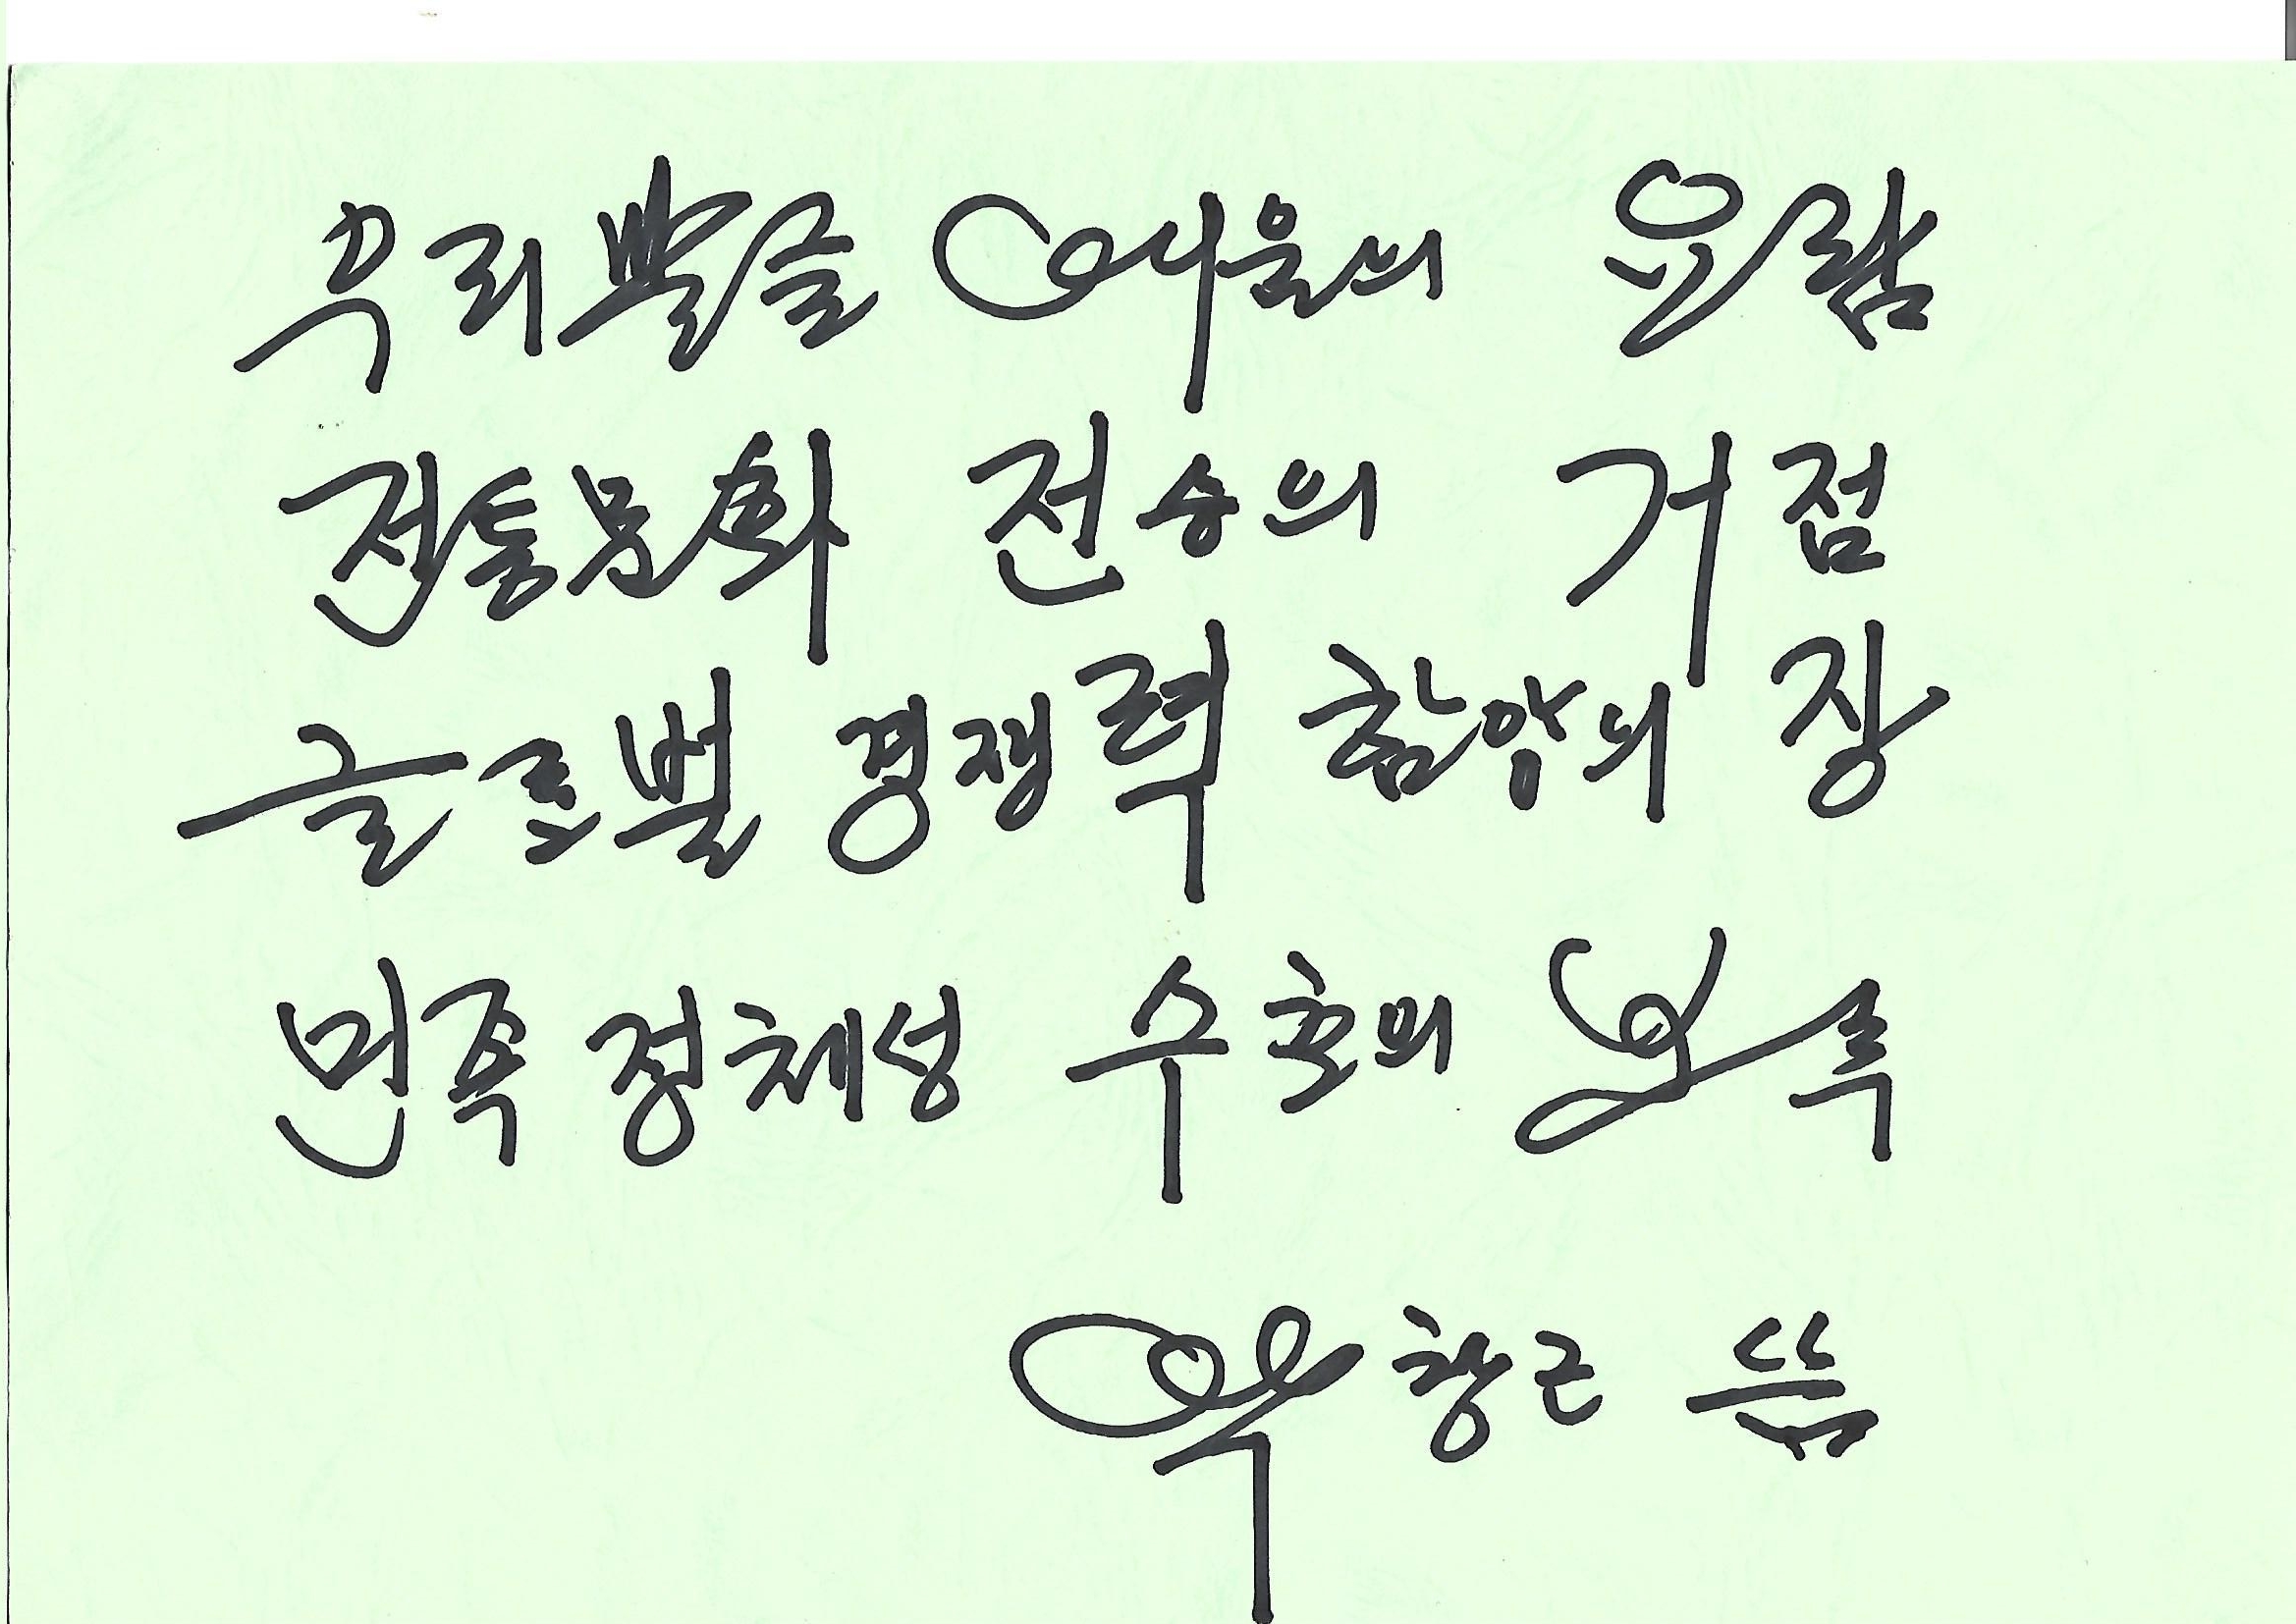 우리말글 얼의 요람
전통문화 전승의 거점
글로벌 경쟁력 함양의 장
민족 정체성 수호의 보루
창근 씀